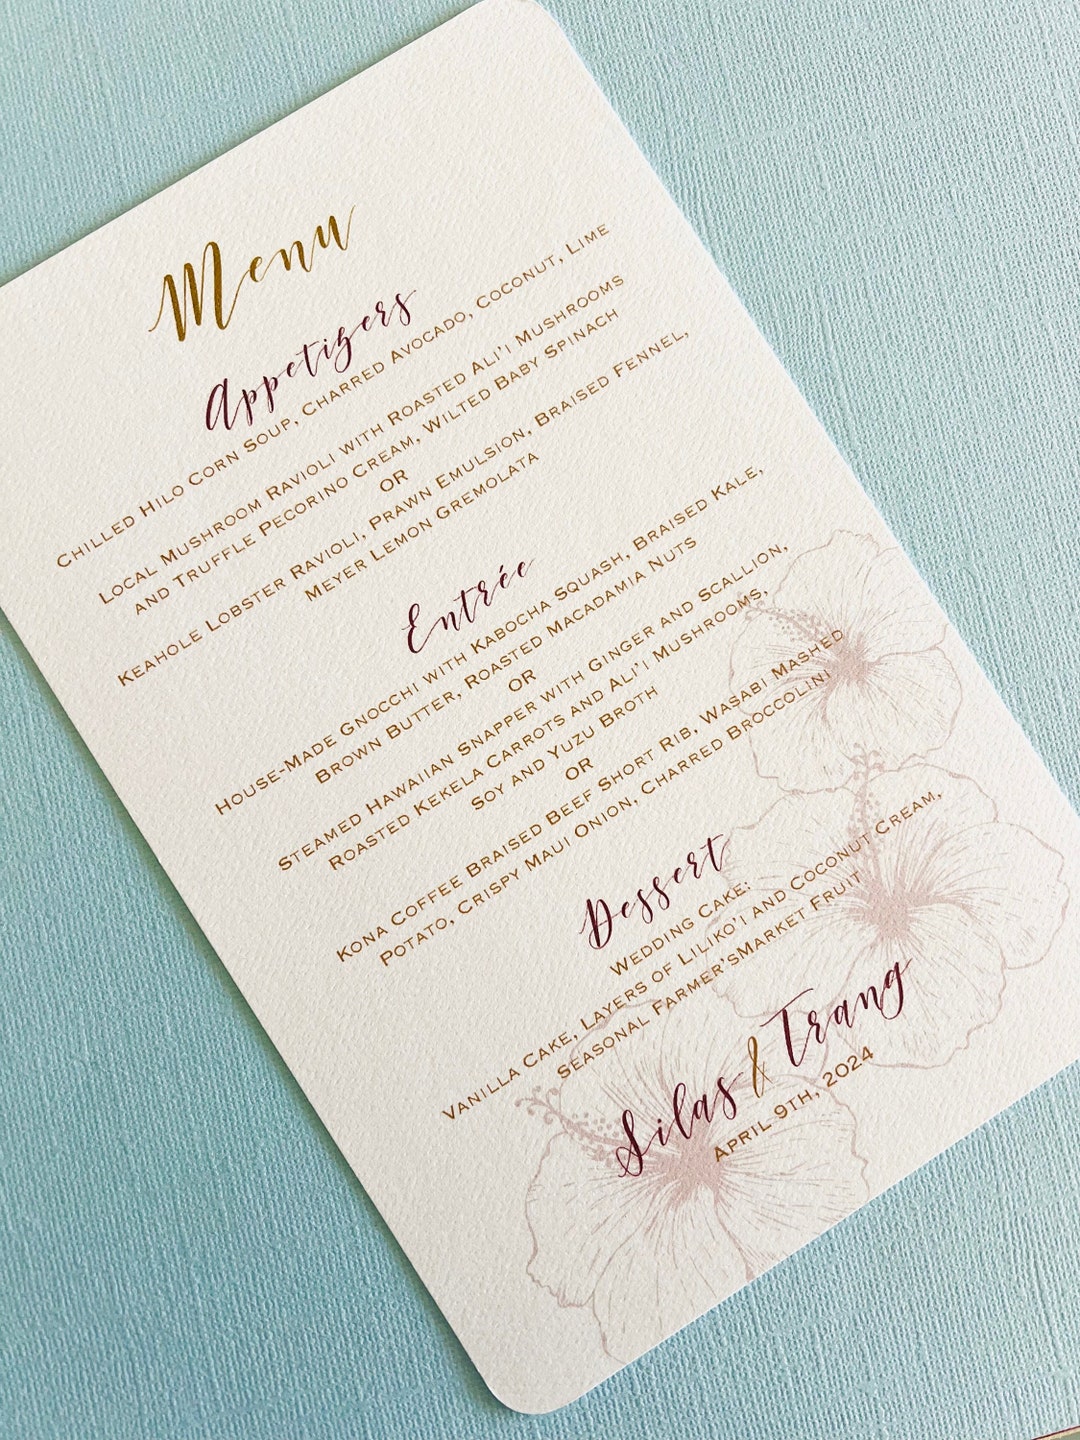 Menu
Appetizers
Chilled Hilo Corn Soup, Charred Avocado, Coconut, Lime
Local Mushroom Ravioli with Roasted Ali'i Mushrooms
and Truffle Pecorino Cream, Wilted Baby Spinach
or
Keahole Lobster Ravioli, Prawn Emulsion, Braised Fennel,
Meyer Lemon Gremolata
Entrée
House-Made Gnocchi with Kabocha Squash, Braised Kale,
Brown Butter, Roasted Macadamia Nuts
or
Steamed Hawaiian Snapper with Ginger and Scallion,
Roasted Kekela Carrots and Ali'i Mushrooms,
Soy and Yuzu Broth
or
Kona Coffee Braised Beef Short Rib, Wasabi Mashed
Potato, Crispy Maui Onion, Charred Broccolini
Dessert
Wedding Cake:
Vanilla Cake, Layers of Liliko'i and Coconut Cream,
Seasonal Farmer'sMarket Fruit
Silas & Trang
April 9th, 2024